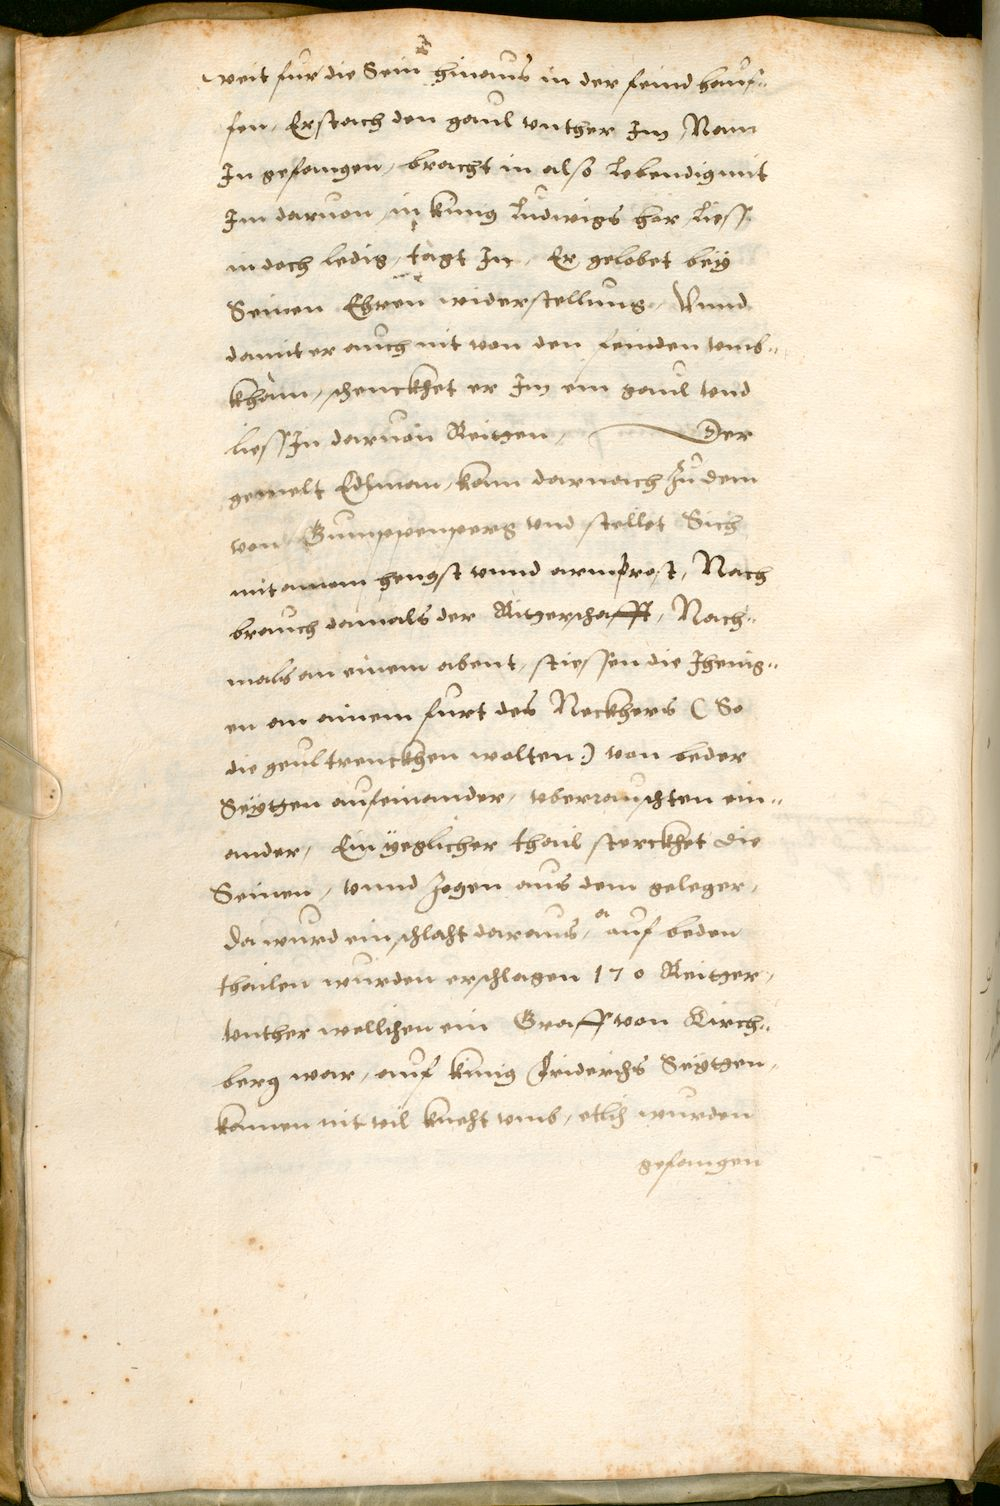 weit fur die Sein hinaus in der feind hauf=
fen, Erstach den gaul vnther Im, Nam
In gefangen, bracht in also lebendig mit
Im daruon, in kunig Ludwigs hör, Liess
in doch ledig, tagt In, Er gelobet bey
Seinen Ehren widerstellung, Vnnd
damit er auch nit von den feinden vmb=
kham, schenckhet er Im ein gaul vnd
liess In daruon Reitten, Der
gemelt Edlman, kam darnach Zu dem
von Gumppenperg vnd stellet Sich
mit ainem hengst vnnd armprost, Nach
brauch damals der Ritterschafft, Nach=
mals an einem abent, stiessen die Jhenig=
en an ainem furt des Neckhers (So
die geul trenckhen wolten) von beder
Seytten aufeinander, vberraischten ein=
ander, Ein yeglicher thail sterckhet die
Seinen, vnnd zogen aus dem geleger,
Da wurd ein schlaht daraus, a auf beden
thailen wurden erschlagen 170 Reitter,
vnther wellichen ein Graff von Kirch=
berg war, auf kunig Friderichs Seytten,
kamen nit vil kneht vmb, etlich wurden
gefangen